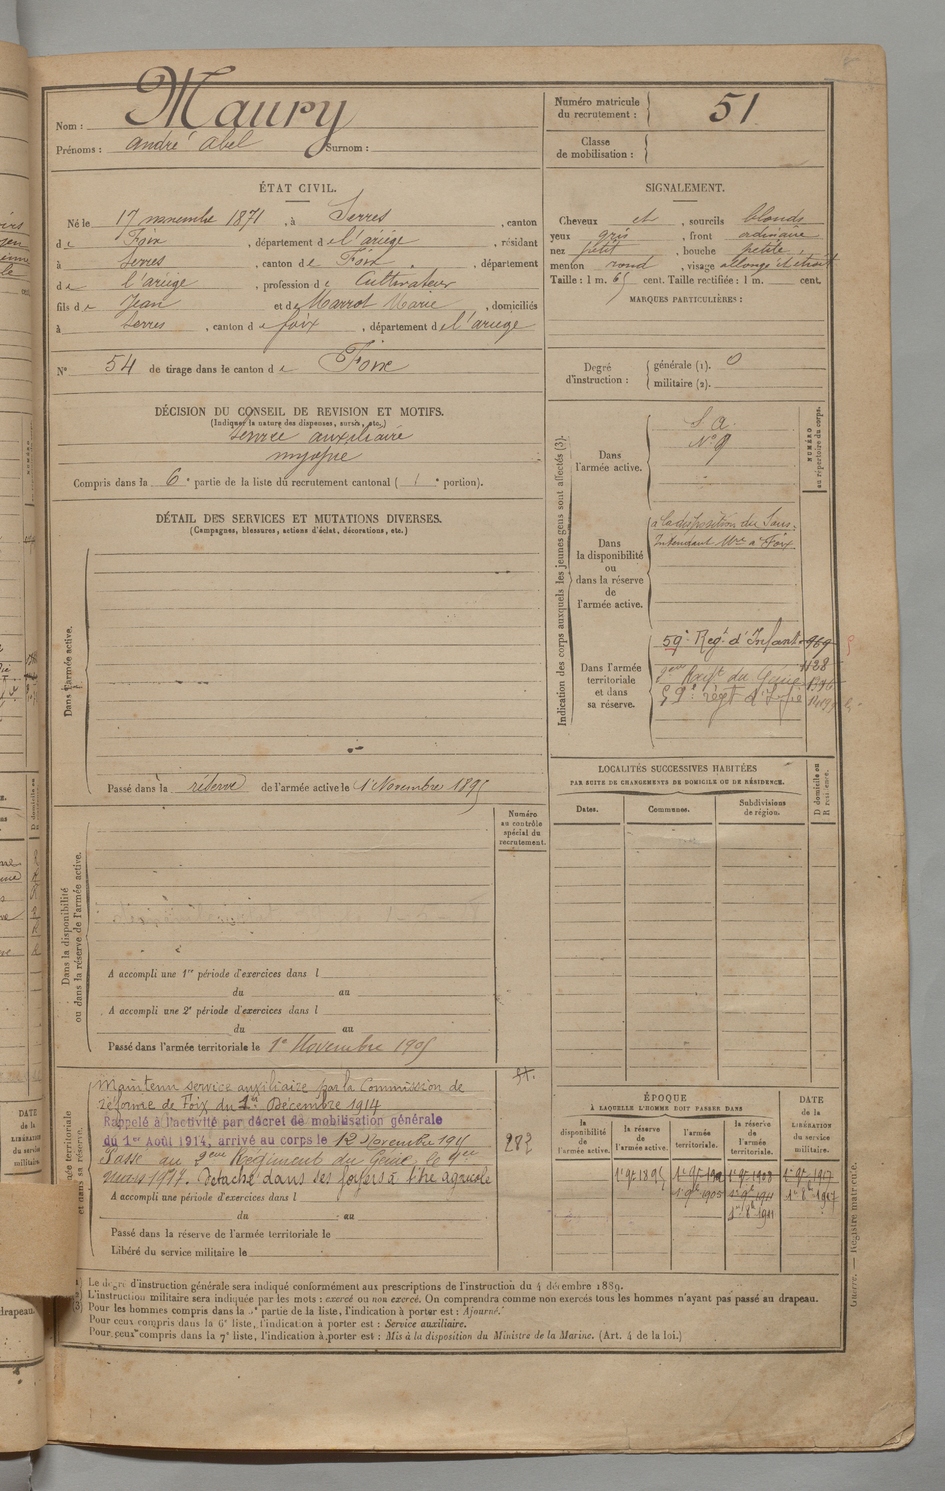 Nom : Maury
Prénoms : André Abel Surnom :
Numéro matricule du recrutement : 51
Classe de mobilisation :
ÉTAT CIVIL.
Né le 17 novembre 1871, à Serres, canton
de Foix, département de l'ariège, résidant
à Serres, canton de Foix, département
de l'ariège, profession de Cultivateur
fils de Jean et de Marrot Marie, domiciliés
à Serres, canton de foix, département de l'ariège
N° 54 de tirage dans le canton de Foix
SIGNALEMENT.
Cheveux et, sourcils blonds
yeux gris, front ordinaire
nez petit, bouche petite
menton rond, visage allongé et étroit
Taille : 1 m. 65 cent. Taille rectifiée : 1 m. cent.
MARQUES PARTICULIÈRES :
Degré d'instruction :
générale (1). 0
militaire (2).
DÉCISION DU CONSEIL DE REVISION ET MOTIFS.
(Indiquer la nature des dispenses, sursis, etc.)
Service auxiliaire
myopie
Compris dans la 6e partie de la liste du recrutement cantonal (1e portion).
DÉTAIL DES SERVICES ET MUTATIONS DIVERSES.
(Campagnes, blessures, actions d'éclat, décorations, etc.)
Dans l'armée active.
Passé dans la réserve de l'armée active le 1 Novembre 1895
Indication des corps auxquels les jeunes gens sont affectés (3).
NUMÉRO au répertoire du corps.
Dans l'armée active.
S. A.
N° 9
Dans la disponibilité ou dans la réserve de l'armée active.
à la disposition du Sous-
Intendant Mre à Foix
Dans l'armée territoriale et dans sa réserve.
59e Regt d'Infant 969
2eme Regt du Génie
59e regt d'Infie
LOCALITÉS SUCCESSIVES HABITÉES
PAR SUITE DE CHANGEMENTS DE DOMICILE OU DE RÉSIDENCE.
Dates.
Communes.
Subdivisions de région.
D domicile ou R résidence.
Dans la disponibilité ou dans la réserve de l'armée active.
Numéro au contrôle spécial du recrutement.
A accompli une 1re période d'exercices dans l
du au
A accompli une 2e période d'exercices dans l
du au
Passé dans l'armée territoriale le 1e Novembre 1905
Maintenu service auxiliaire par la Commission de
réforme de Foix du 1er Décembre 1914
Rappelé à l'activité par décret de mobilisation générale
du 1er Août 1914, arrivé au corps le 12 Novembre 1915
Passe au 2eme Régiment du Génie le 1er
mars 1917. Détaché dans ses foyers à titre agricole
282
A accompli une période d'exercices dans l
du au
Passé dans la réserve de l'armée territoriale le
Libéré du service militaire le
ÉPOQUE
À LAQUELLE L'HOMME DOIT PASSER DANS
la disponibilité de l'armée active.
la réserve de l'armée active.
l'armée territoriale.
la réserve de l'armée territoriale.
DATE de la LIBÉRATION du service militaire.
1er 9e 1895
1er 9e 1905
1er 9e 1908
1er 9e 1911
1er 8e 1911
1er 9e 1917
1er 8e 1917
Le degré d'instruction générale sera indiqué conformément aux prescriptions de l'instruction du 4 décembre 1889.
L'instruction militaire sera indiquée par les mots : exercé ou non exercé. On comprendra comme non exercés tous les hommes n'ayant pas passé au drapeau.
(3) Pour les hommes compris dans la 5e partie de la liste, l'indication à porter est : Ajourné.
Pour ceux compris dans la 6e liste, l'indication à porter est : Service auxiliaire.
Pour ceux compris dans la 7e liste, l'indication à porter est : Mis à la disposition du Ministre de la Marine. (Art. 4 de la loi.)
Guerre. — Registre matricule.